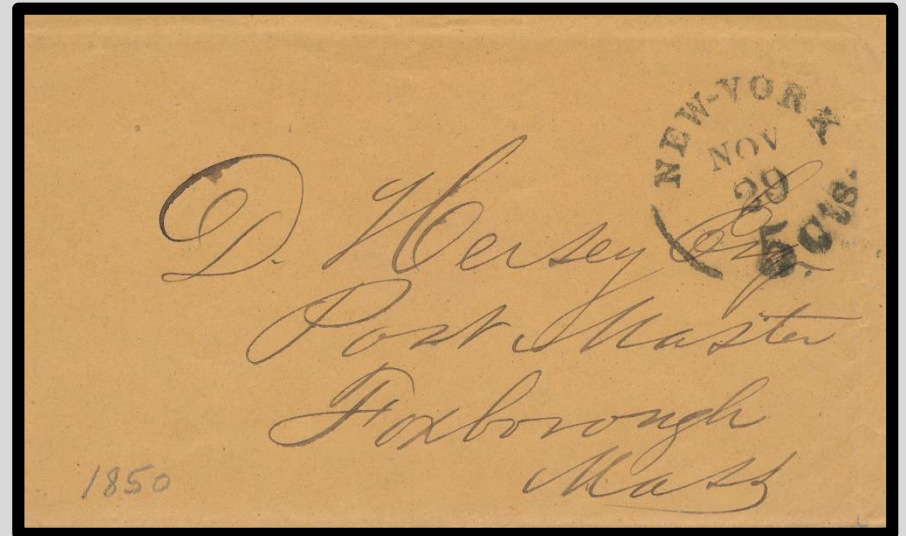 NEW-YORK
NOV
29
5 cts.
D. Hersey Esq.
Post Master
Foxborough
Mass
1850